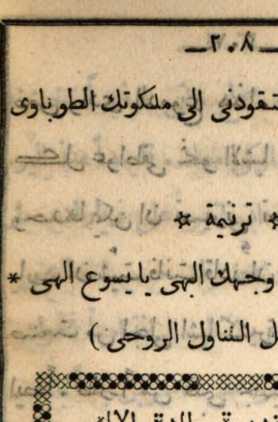 ـ٢٠٨ـ
تقودنى الى ملكوتك الطوباوى
* ترنيمة *
وجهك البهى يا يسوع الهى *
ل التناول الروحى )